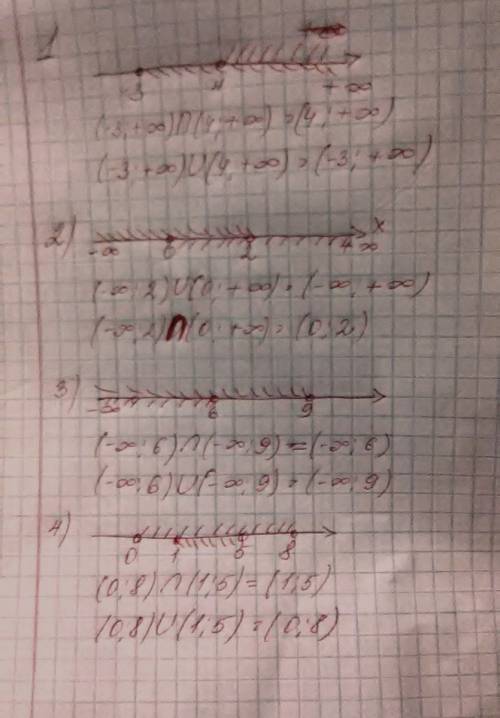 1
-3 4 +∞
(-3;+∞)∩(4;+∞)=(4;+∞)
(-3;+∞)∪(4;+∞)=(-3;+∞)
2) x
-∞ 0 2 +∞
(-∞;2)∪(0;+∞)=(-∞;+∞)
(-∞;2)∩(0;+∞)=(0;2)
3)
-∞ 6 9
(-∞;6)∩(-∞;9)=(-∞;6)
(-∞;6)∪(-∞;9)=(-∞;9)
4)
0 1 5 8
(0;8)∩(1;5)=(1;5)
(0;8)∪(1;5)=(0;8)